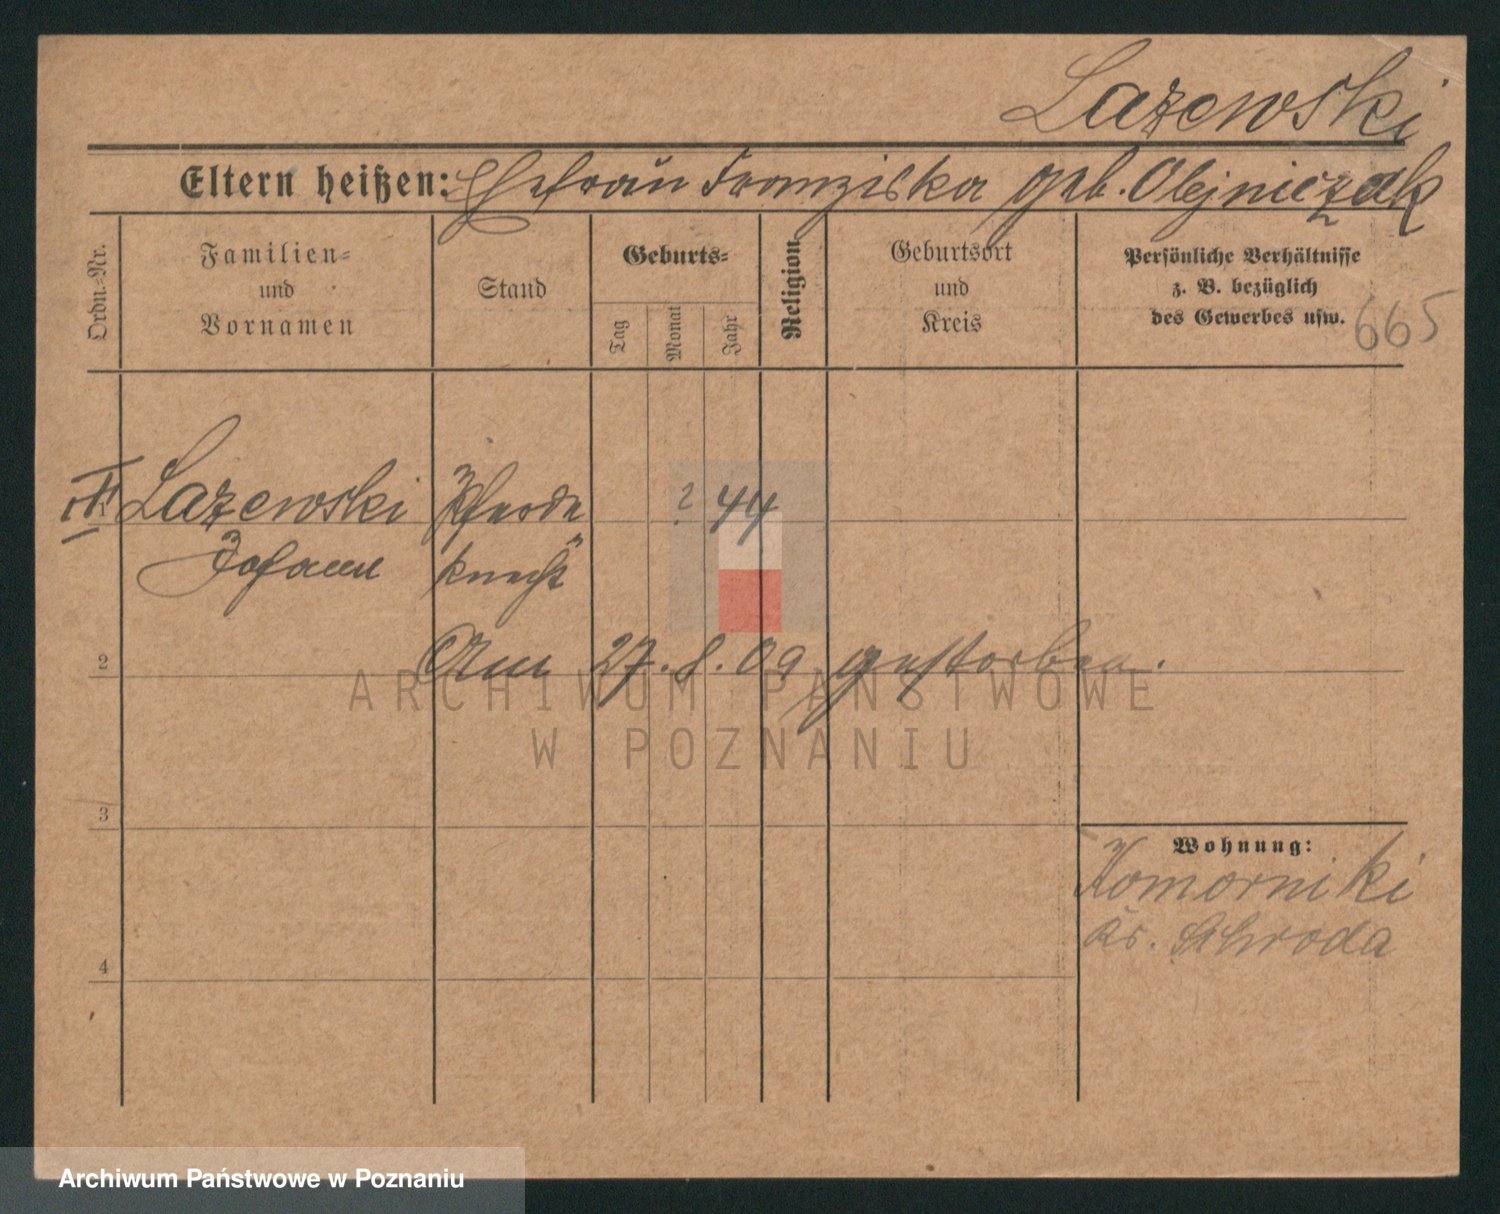 Lazewski
Eltern heißen: Ehefrau Franziska geb. Olejniczak
Ordn.-Nr.
Familien- und Vornamen
Stand
Geburts-
Tag
Monat
Jahr
Religion
Geburtsort und Kreis
Persönliche Verhältnisse
z. B. bezüglich
des Gewerbes usw.
665
Lazewski Pferde ? 44
Johann knecht
2 Am 27. 8. 09 gestorben.
ARCHIWUM PAŃSTWOWE
W POZNANIU
3
Wohnung:
Komorniki
Kr. Schroda
4
Archiwum Państwowe w Poznaniu